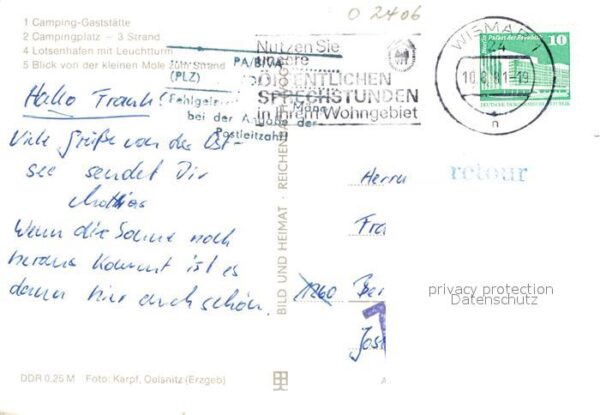 O 2406
1 Camping-Gaststätte
2 Campingplatz - 3 Strand
4 Lotsenhafen mit Leuchtturm
5 Blick von der kleinen Mole zum Strand
PA/BIVA
(PLZ)
Fehlgelei
bei der Angabe der
Postleitzahl!
Nutzen Sie
unsere
ÖFFENTLICHEN
SPRECHSTUNDEN
in Ihrem Wohngebiet
WISMAR 1
24
10.8.81-19
n
10
Palast der Republik
Hallo Frank!
Viele Grüße von der Ost-
see sendet Dir
Mathias
Wenn die Sonne noch
heraus kommt ist es
dann hier auch schön.
BILD UND HEIMAT · REICHEN
Herrn
retour
Fra
1260 Ber
Jos
privacy protection
Datenschutz
DDR 0,25 M Foto: Karpf, Oelsnitz (Erzgeb)
A